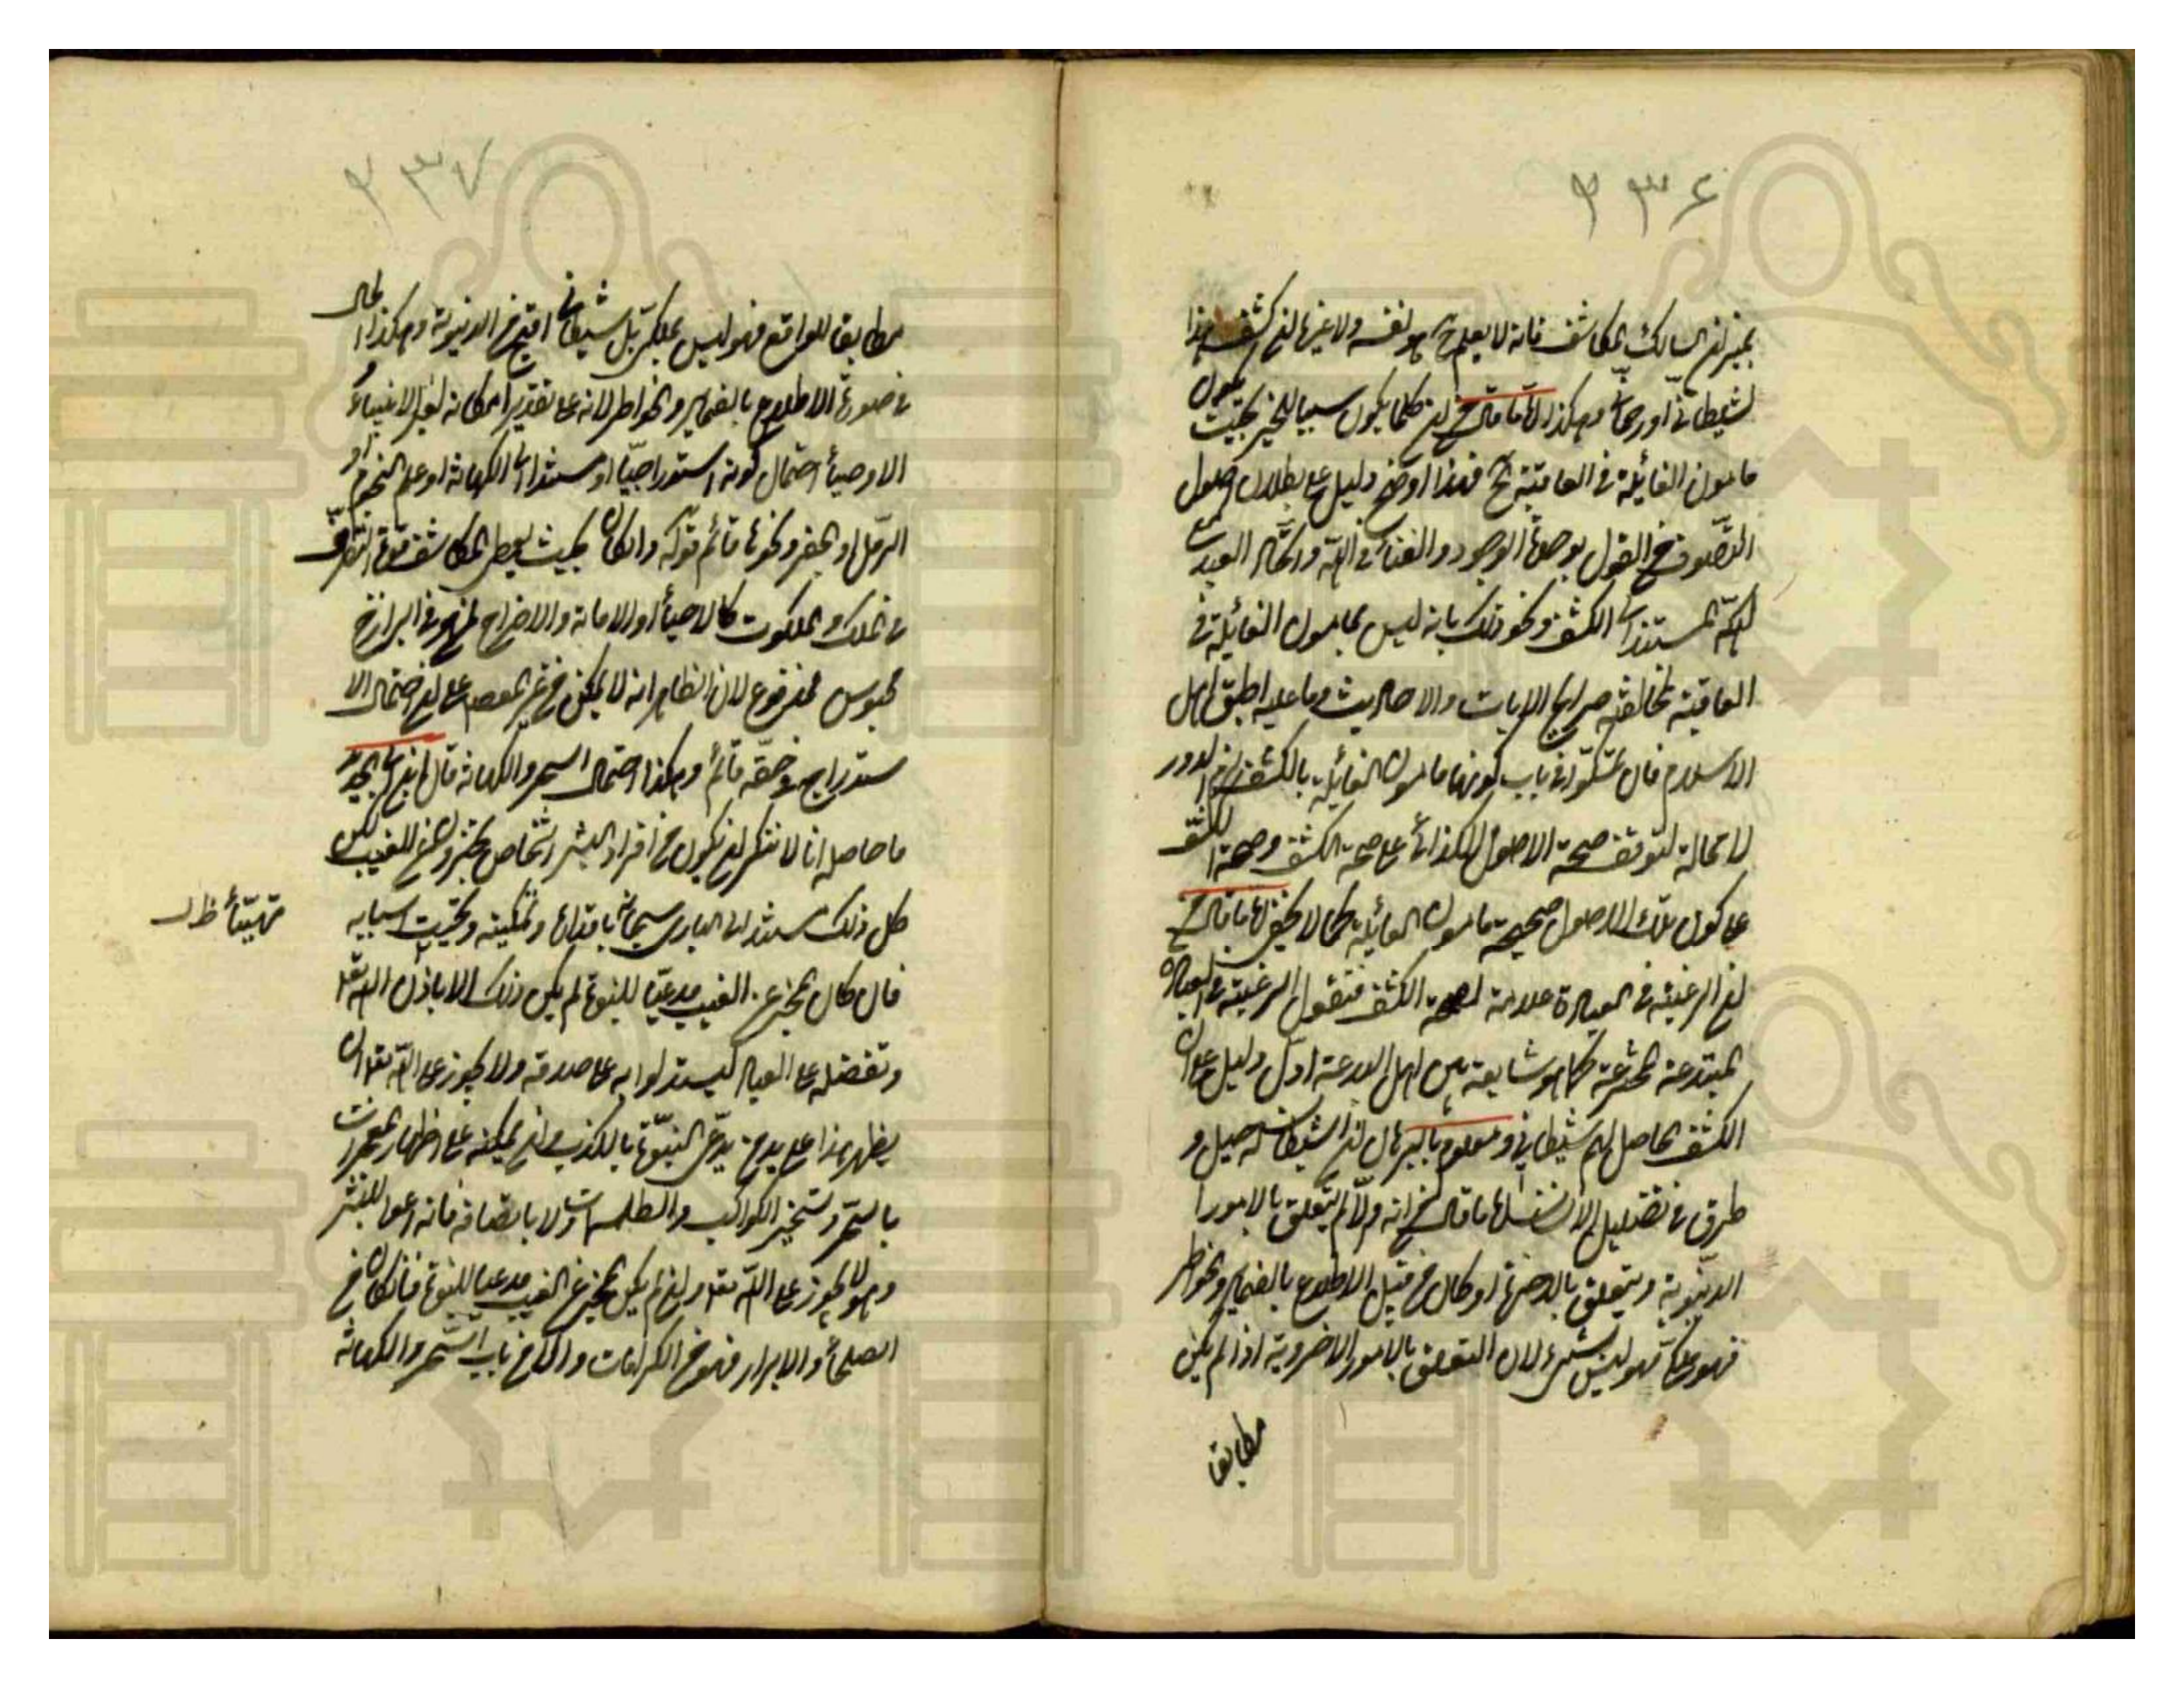 ٢٣٦
السالك المكاشف فانه لا يعلم هو نفسه ولا غيره ان كشفه هذا
شيطانى او رحمانى وهكذا اما ما قال من ان كلما يكون سببا للخير بحيث يكون
مامون الغائلة فى العاقبة الخ فهذا اوضح دليل على بطلان اصول
التصوف من القول بوحدة الوجود والفناء فى الله واتحاد العبد مع
الله المستند الى الكشف ونحو ذلك بانه ليس بمامون الغائلة فى
العاقبة لمخالفته صرايح الايات والاحاديث وما عليه اطبق اهل
الاسلام فان تمسكوا فى باب كونها مامون الغائلة بالكشف لزم الدور
لا محالة لتوقف صحة الاصول الكذائى على صحة الكشف وصحة الكشف
على كون تلك الاصول صحيحة مامون الغائلة كما لا يخفى اما ما قال من
ان الرغبة فى العبادة علامة لصحة الكشف فنقول الرغبة فى العبادة
المبتدعة المخترعة كما هو شايعة بين اهل البدعة اول دليل على ان
الكشف الحاصل لهم شيطانى ومعلوم بالبرهان ان الشيطان له حيل و
طرق فى تضليل الانسان اما ما قال من انه ولا لم يتعلق بالامور
الدنيوية ويتعلق بالاخرة او كان من قبيل الاطلاع بالضماير والخواطر
فهو ملكى فهو ليس بشىء لان التعلق بالامور الاخروية اذا لم يكن
مطابقا
٢٣٧
مطابقا للواقع فهو ليس بملكى بل شيطانى اقبح من الدنيوية وهكذا الحال
فى صورة الاطلاع بالضماير والخواطر لانه على تقدير امكانه لغير الانبياء و
الاوصياء احتمال كونه استدراجيا او مستندا الى الكهانة او علم النجوم او
الرمل او الجفر ونحوها قائم قوله وان كان بحيث يعطى المكاشف قوة التصرف
فى الملك والملكوت كالاحياء والاماتة والاخراج لمن هو فى البرازخ
محبوس ممنوع لان الظاهر انه لا يمكن من غير المعصوم على ان احتمال الا
ستدراج فى حقه قائم وهكذا احتمال السحر والكهانة قال ابن ابى الحديد
ما حاصله انا لا ننكر ان يكون من افراد البشر اشخاص يخبرون عن الغيب لكن
كل ذلك مستند الى البارى سبحانه باقداره وتمكينه وتحبيب اسبابه
تهيئة ظ ل
فان كان المخبر عن الغيب مدعيا للنبوة لم يكن ذلك الا باذن الله تعالى
وتفضله على العباد ليستدلوا به على صدقه ولا يجوز على الله تعالى ان
يظهر هذا على يد من يدعى النبوة بالكذب وان يمكنه على اظهار المعجزات
بالسحر وتسخير الكواكب والطلسمات ولا
وهو لا يجوز على الله تعالى وان لم يكن المخبر عن الغيب مدعيا للنبوة فان كان من
الصلحاء والابرار فهو من الكرامات والا من باب السحر والكهانة